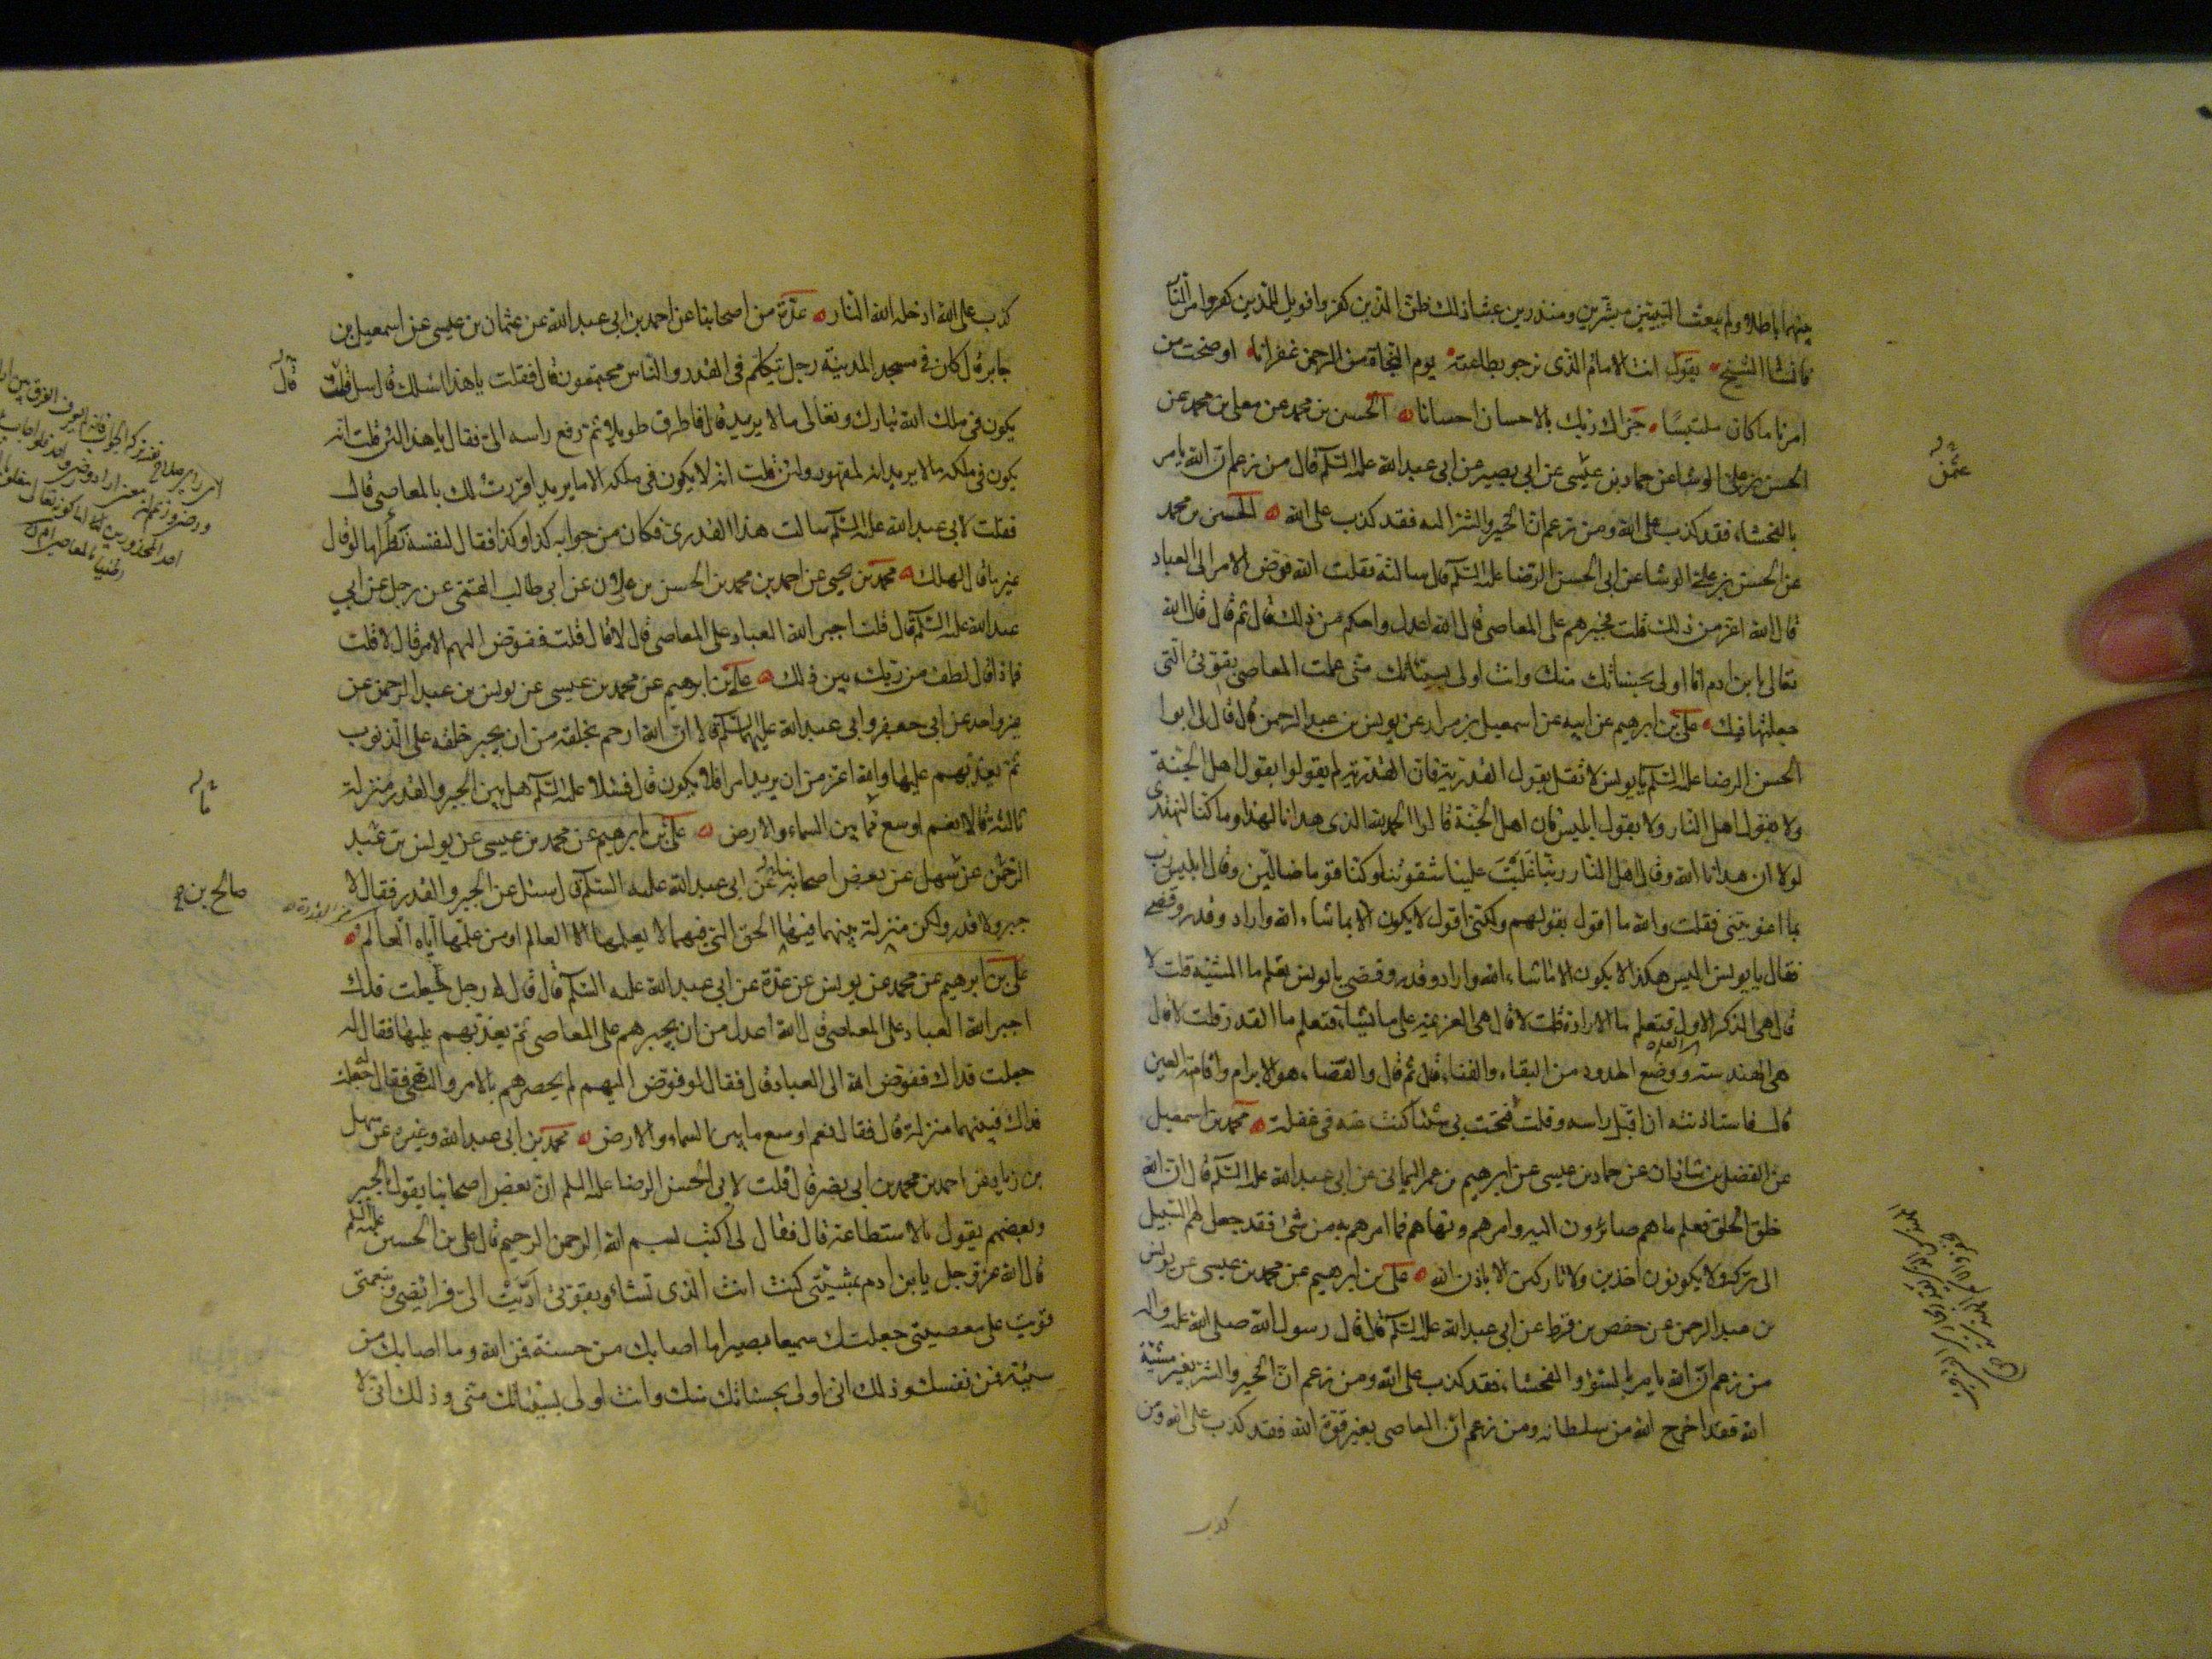 بينهما باطلا ولم يبعث النبيين مبشرين ومنذرين عبثا ذلك ظن الذين كفروا فويل للذين كفروا من النار
فانشا الشيخ يقول انت الامام الذى نرجو بطاعته يوم النجاة من الرحمن غفرانا اوضحت من
امرنا ما كان ملتبسا جزاك ربك بالاحسان احسانا الحسين بن محمد عن معلى بن محمد عن
الحسن بن على الوشا عن حماد بن عيسى عن ابى بصير عن ابى عبد الله عليه السلم قال من زعم ان الله يامر
بالفحشاء فقد كذب على الله ومن زعم ان الخير والشر اليه فقد كذب على الله الحسين بن محمد
عن الحسن بن على الوشا عن ابى الحسن الرضا عليه السلم قال سالته فقلت الله فوض الامر الى العباد
قال الله اعز من ذلك قلت فجبرهم على المعاصى قال الله اعدل واحكم من ذلك قال ثم قال قال الله
تعالى يا بن ادم انا اولى بحسناتك منك وانت اولى بسيئاتك منى عملت المعاصى بقوتى التى
جعلتها فيك على بن ابرهيم عن ابيه عن اسمعيل بن مرار عن يونس بن عبد الرحمن قال قال لى ابو
الحسن الرضا عليه السلم يا يونس لا تقل بقول القدرية فان القدرية لم يقولوا بقول اهل الجنة
ولا بقول اهل النار ولا بقول ابليس فان اهل الجنة قالوا الحمد لله الذى هدانا لهذا وما كنا لنهتدى
لولا ان هدانا الله وقال اهل النار ربنا غلبت علينا شقوتنا وكنا قوما ضالين وقال ابليس رب
بما اغويتنى فقلت والله ما اقول بقولهم ولكنى اقول لا يكون الا بما شاء الله واراد وقدر وقضى
فقال يا يونس ليس هكذا لا يكون الا ما شاء الله واراد وقدر وقضى يا يونس تعلم ما المشية قلت لا
قال هى الذكر الاول فتعلم ما الارادة قلت لا قال هى العزيمة على ما يشاء فتعلم ما القدر قلت لا قال
هى الهندسة ووضع الحدود من البقاء والفناء قال ثم قال والقضاء هو الابرام واقامة العين
قال فاستاذنته ان اقبل راسه وقلت فتحت لى شيئا كنت عنه فى غفلة محمد بن اسمعيل
عن الفضل بن شاذان عن حماد بن عيسى عن ابرهيم بن عمر اليمانى عن ابى عبد الله عليه السلم قال ان الله
خلق الخلق فعلم ما هم صائرون اليه وامرهم ونهاهم فما امرهم به من شئ فقد جعل لهم السبيل
الى تركه ولا يكونون اخذين ولا تاركين الا باذن الله على بن ابرهيم عن محمد بن عيسى عن يونس
بن عبد الرحمن عن حفص بن قرط عن ابى عبد الله عليه السلم قال قال رسول الله صلى الله عليه واله
من زعم ان الله يامر بالسوء والفحشاء فقد كذب على الله ومن زعم ان الخير والشر بغير مشية
الله فقد اخرج الله من سلطانه ومن زعم ان المعاصى بغير قوة الله فقد كذب على الله ومن
كذب
كذب على الله ادخله الله النار عدة من اصحابنا عن احمد بن ابى عبد الله عن عثمان بن عيسى عن اسمعيل بن
جابر قال كان فى مسجد المدينة رجل يتكلم فى القدر والناس مجتمعون قال فقلت يا هذا اسئلك قال سل قلت
يكون فى ملك الله تبارك وتعالى ما لا يريد قال فاطرق طويلا ثم رفع راسه الى فقال يا هذا لئن قلت انه
يكون فى ملكه ما لا يريد انه لمقهور ولئن قلت انه لا يكون فى ملكه الا ما يريد اقررت لك بالمعاصى قال
فقلت لابى عبد الله عليه السلم سالت هذا القدرى فكان من جوابه كذا وكذا فقال لنفسه نظر اما لو قال
غير ما قال لهلك محمد بن يحيى عن احمد بن محمد بن الحسن بن علان عن ابى طالب القمى عن رجل عن ابي
عبد الله عليه السلم قال قلت اجبر الله العباد على المعاصى قال لا قال قلت ففوض اليهم الامر قال لا قلت
فماذا قال لطف من ربك بين ذلك على بن ابرهيم عن محمد بن عيسى عن يونس بن عبد الرحمن عن
غير واحد عن ابى جعفر وابى عبد الله عليهما السلم قالا ان الله ارحم بخلقه من ان يجبر خلقه على الذنوب
ثم يعذبهم عليها والله اعز من ان يريد امرا فلا يكون قال فسئلا عليه السلم هل بين الجبر والقدر منزلة
ثالثة قالا نعم اوسع مما بين السماء والارض على بن ابرهيم عن محمد بن عيسى عن يونس بن عبد
الرحمن عن سهل عن بعض اصحابه عن ابى عبد الله عليه السلم قال سئل عن الجبر والقدر فقال لا
جبر ولا قدر ولكن منزلة بينهما فيها الحق التى بينهما لا يعلمها الا العالم او من علمها اياه العالم
على بن ابرهيم عن محمد عن يونس عن عدة عن ابى عبد الله عليه السلم قال قال له رجل جعلت فداك
اجبر الله العباد على المعاصى قال الله اعدل من ان يجبرهم على المعاصى ثم يعذبهم عليها فقال له
جعلت فداك ففوض الله الى العباد قال فقال لو فوض اليهم لم يحصرهم بالامر والنهى فقال له جعلت
فداك فبينهما منزلة قال فقال نعم اوسع ما بين السماء والارض محمد بن ابى عبد الله وغيره عن سهل
بن زياد عن احمد بن محمد بن ابى نصر قال قلت لابى الحسن الرضا عليه السلم ان بعض اصحابنا يقول بالجبر
وبعضهم يقول بالاستطاعة قال فقال لى اكتب بسم الله الرحمن الرحيم قال على بن الحسين عليه السلم
قال الله عز وجل يا بن ادم بمشيتى كنت انت الذى تشاء وبقوتى اديت الى فرائضى وبنعمتى
قويت على معصيتى جعلتك سميعا بصيرا ما اصابك من حسنة فمن الله وما اصابك من
سيئة فمن نفسك وذلك انى اولى بحسناتك منك وانت اولى بسيئاتك منى وذلك انى لا
قال
صالح بن